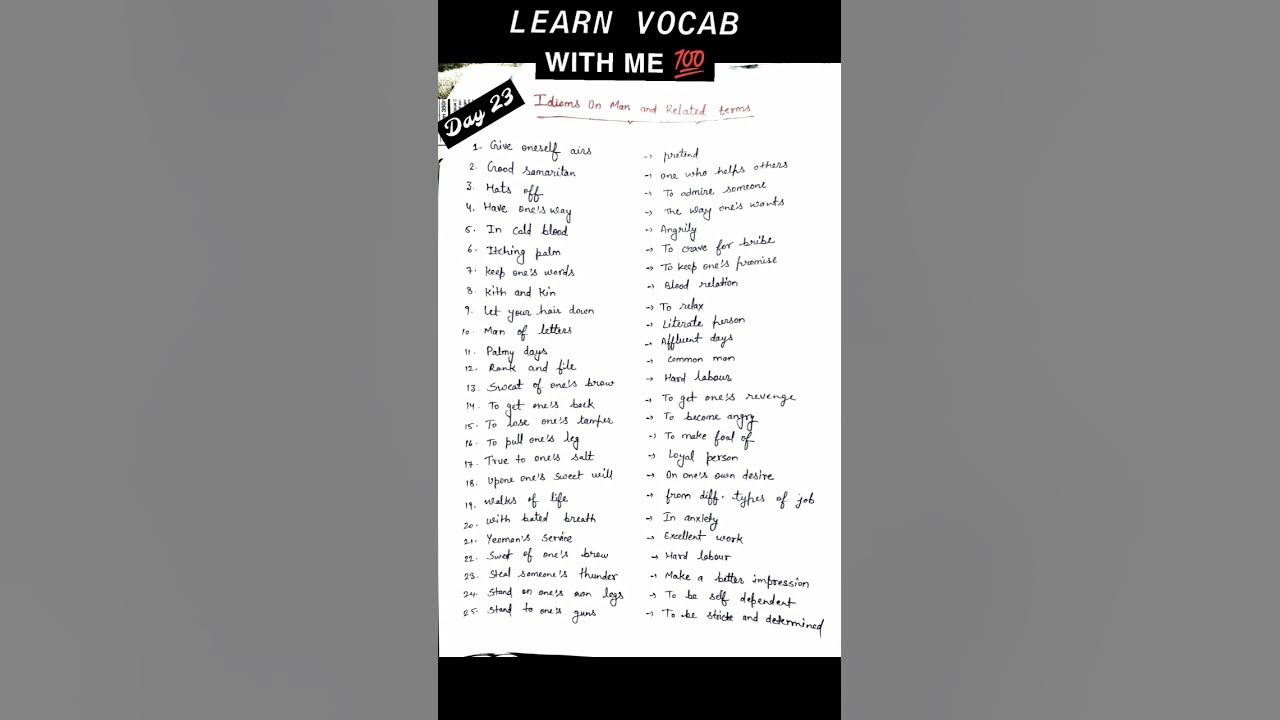 LEARN VOCAB
WITH ME 💯
Day 23
Idioms On Man and Related terms
1. Give oneself airs -> pretend
2. Good samaritan -> one who helps others
3. Hats off -> To admire someone
4. Have one's way -> The way one's wants
5. In cald blood -> Angrily
6. Itching palm -> To crave for bribe
7. Keep one's words -> To keep one's promise
8. Kith and Kin -> Blood relation
9. Let your hair down -> To relax
10. Man of letters -> Literate person
11. Palmy days -> Affluent days
12. Rank and file -> Common man
13. Sweat of one's brow -> Hard labour
14. To get one's back -> To get one's revenge
15. To lose one's tamper -> To become angry
16. To pull one's leg -> To make fool of
17. True to one's salt -> Loyal person
18. Upone one's sweet will -> On one's own desire
19. Walks of life -> from diff. types of job
20. With bated breath -> In anxiety
21. Yeoman's service -> Excellent work
22. Swet of one's brow -> Hard labour
23. Steal someone's thunder -> Make a better impression
24. Stand on one's own legs -> To be self dependent
25. Stand to one's guns -> To be and determined